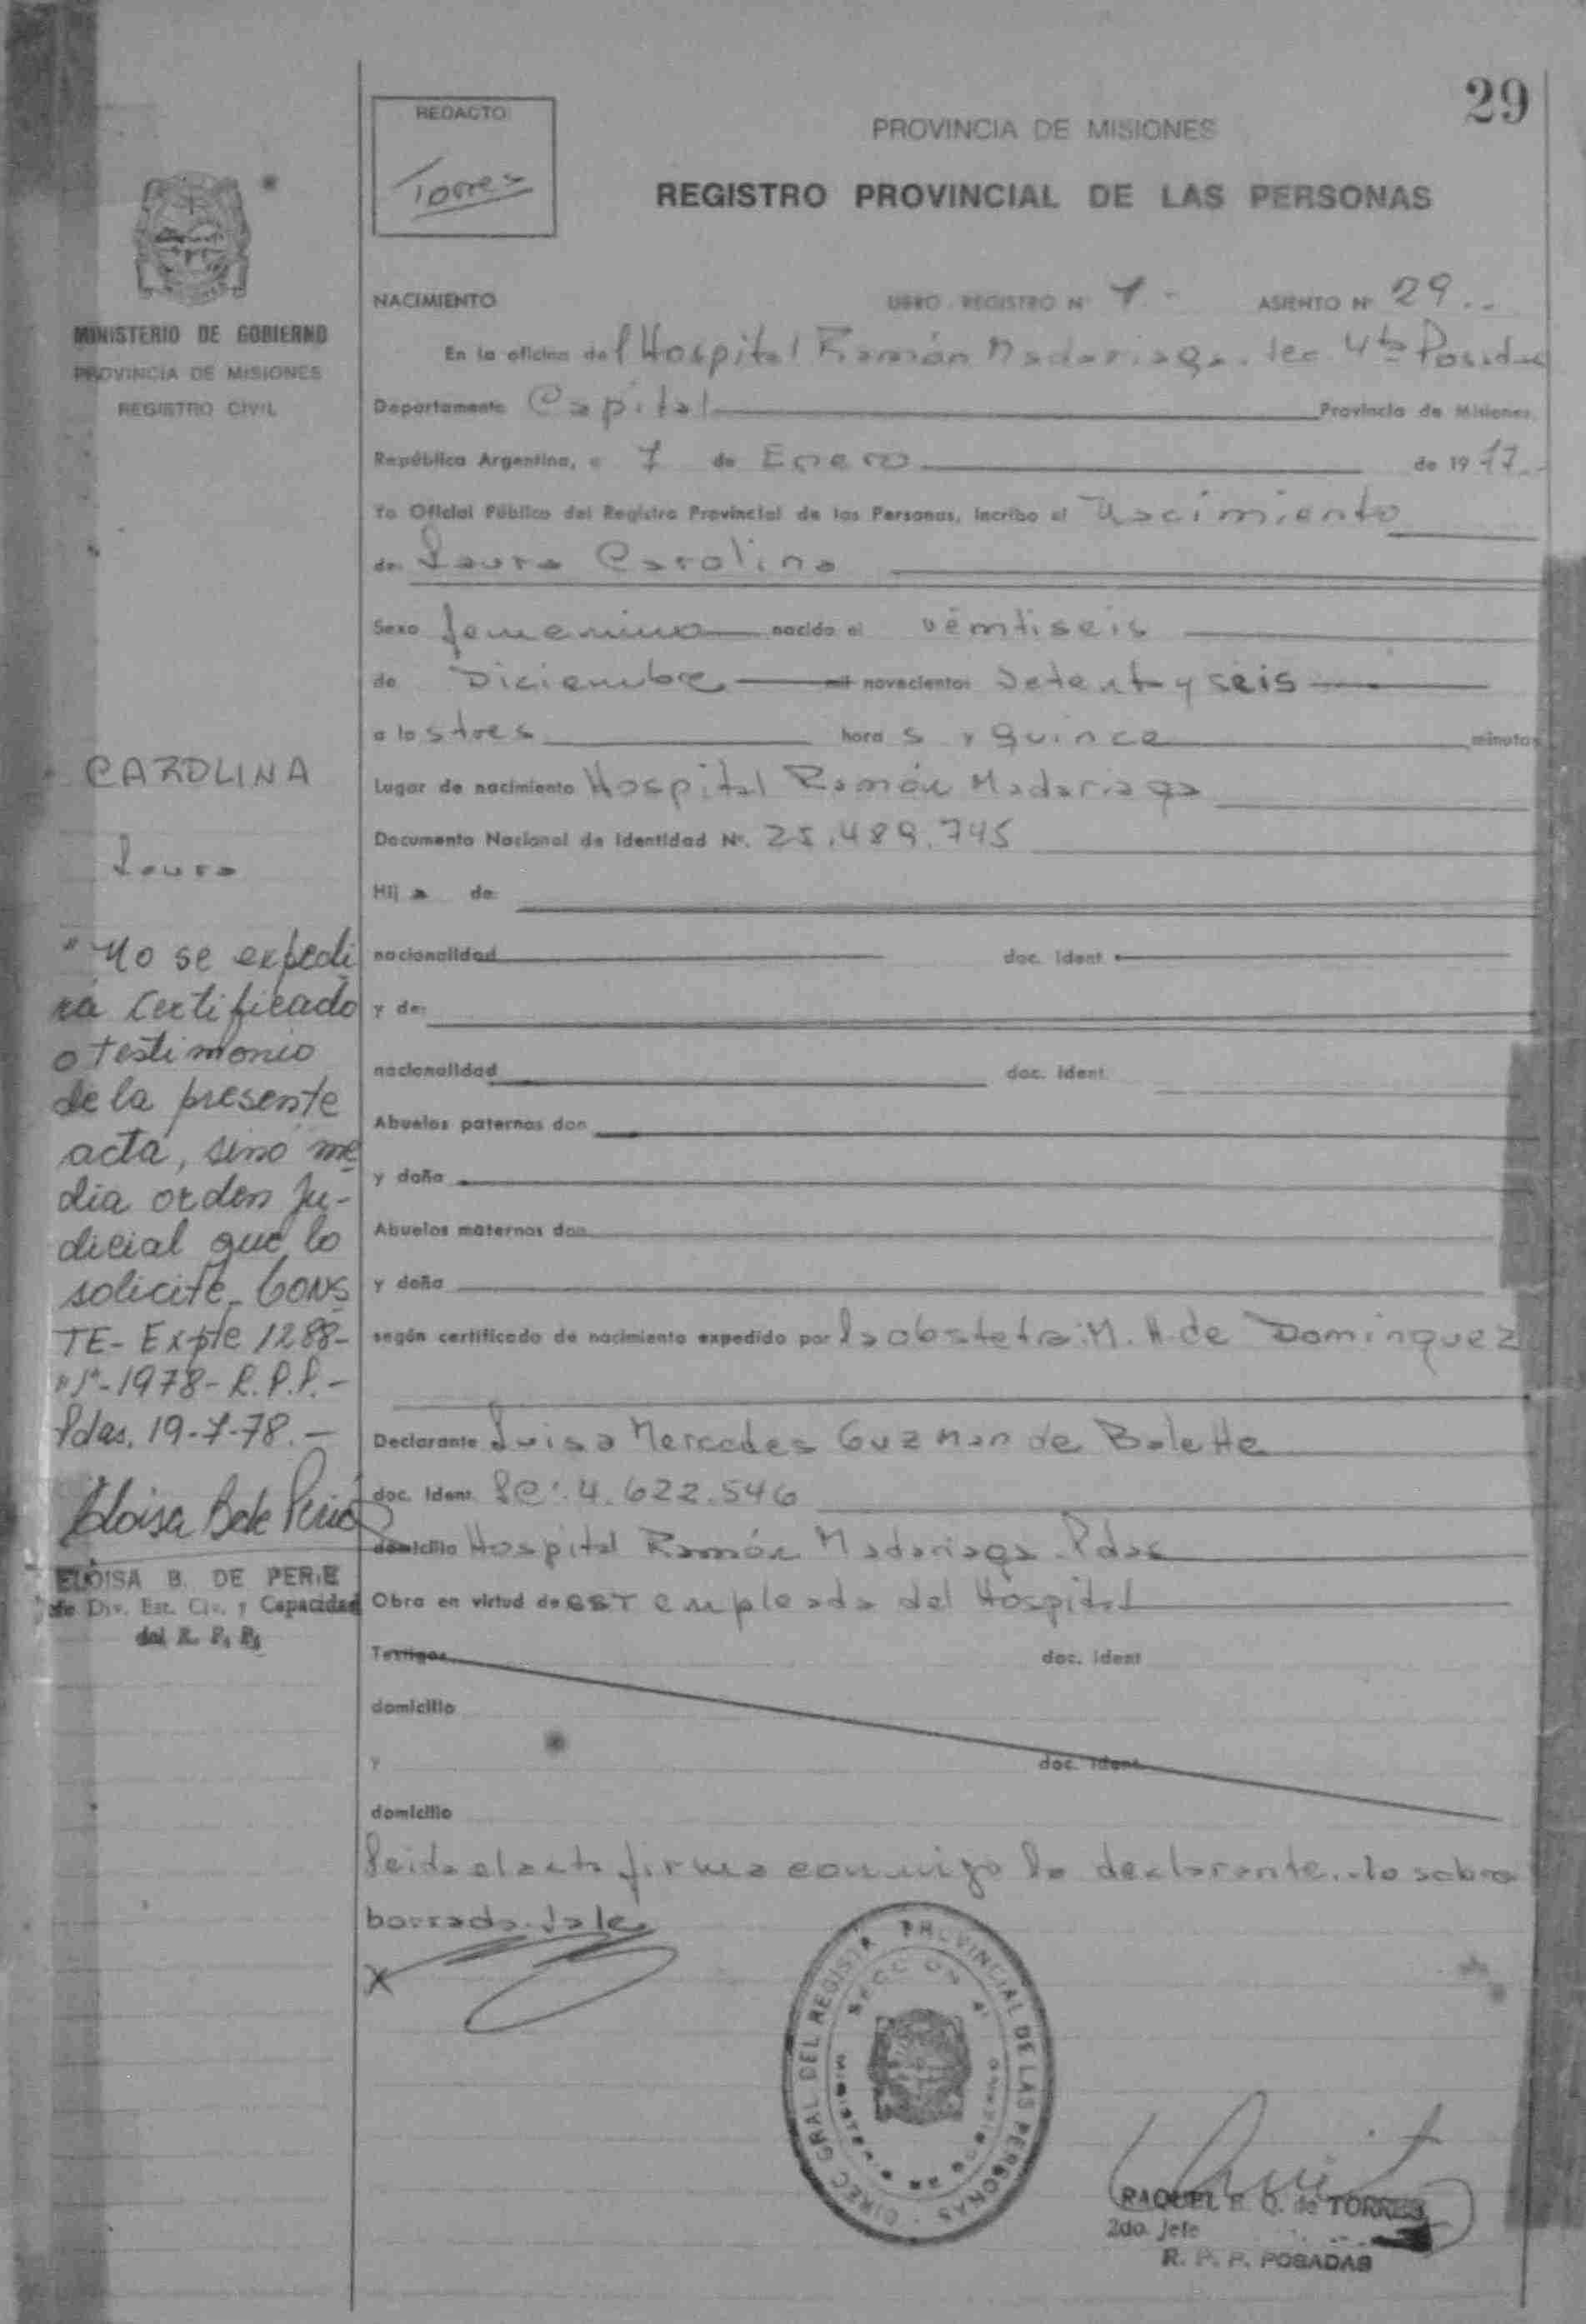 29
REDACTO
Torres
PROVINCIA DE MISIONES
REGISTRO PROVINCIAL DE LAS PERSONAS
MINISTERIO DE GOBIERNO
PROVINCIA DE MISIONES
REGISTRO CIVIL
NACIMIENTO LIBRO REGISTRO Nº 1.- ASIENTO Nº 29..
En la oficina del Hospital Ramón Madariaga. Sec. 4ta Posadas
Departamento Capital Provincia de Misiones
República Argentina, a 7 de Enero de 1977.-
Yo Oficial Público del Registro Provincial de las Personas, incribo el Nacimiento
de: Laura Carolina
Sexo femenino nacido el véintiseis
de Diciembre mil novecientos Setenta y séis
a las tres horas y quince minutos
Lugar de nacimiento Hospital Ramón Madariaga
Documento Nacional de Identidad Nº. 25.489.745
Hija de:
nacionalidad doc. ident
y de:
nacionalidad doc. ident.
Abuelos paternos don
y doña
Abuelos maternos don
y doña
según certificado de nacimiento expedido por la obstetra: M. H. de Dominguez
Declarante Luisa Mercedes Guzman de Balette
doc. Ident. LC: 4.622.546
domicilio Hospital Ramón Madariaga. Pdas
Obra en virtud de ser empleada del Hospital
Testigos doc. ident
domicilio
y doc. ident.
domicilio
Leida el acta firma conmigo la declarante. lo sobre
borrado. Vale
X
CAROLINA
Laura
"No se expedi
rá Certificado
o testimonio
de la presente
acta, sino me
dia orden Ju-
dicial que lo
solicite_ CONS
TE- Expte 1288-
"J"-1978- R.P.P.-
Pdas, 19-7-78.-
Eloisa B. de Perié
ELOISA B. DE PERIE
Jefe Div. Est. Civ. y Capacidad
del R. P. P.
DIREC GRAL DEL REGISTR PROVINCIAL DE LAS PERSONAS
SECCION 4ª
MINISTERIO DE GOBIERNO
RAQUEL E. Q. de TORRES
2do. Jefe
R. P. P. POSADAS